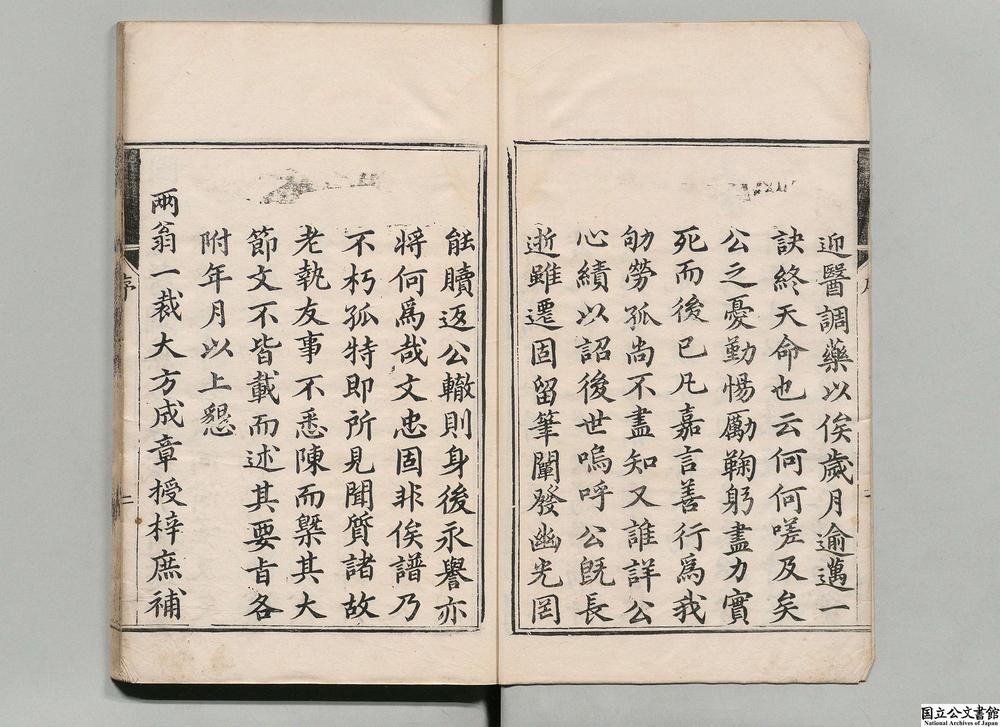 迎醫調藥以俟歲月逾邁一
訣終天命也云何何嗟及矣
公之憂勤惕勵鞠躬盡力實
死而後已凡嘉言善行爲我
劬勞孤尚不盡知又誰詳公
心績以詔後世嗚呼公旣長
逝雖遷固留筆闡發幽光罔
能贖返公轍則身後永譽亦
將何爲哉文忠固非俟譜乃
不朽孤特即所見聞質諸故
老執友事不悉陳而槩其大
節文不皆載而述其要旨各
附年月以上懇
兩翁一裁大方成章授梓庶補
序
二
国立公文書館
National Archives of Japan